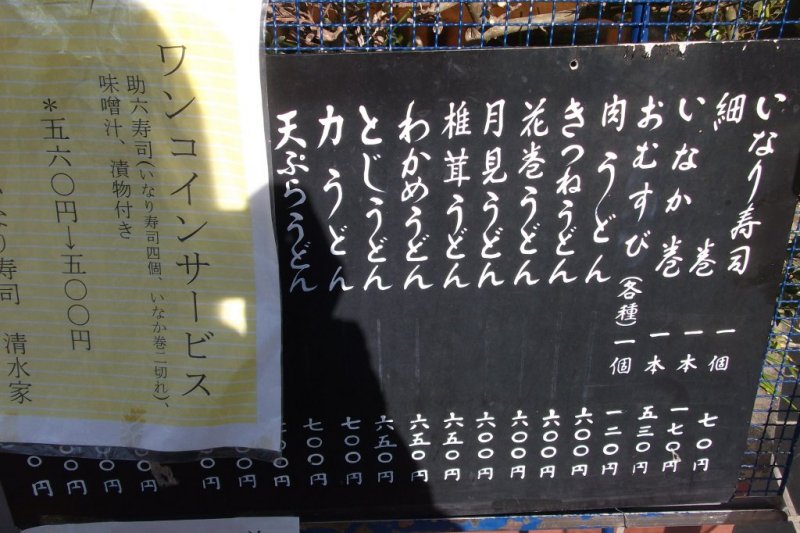 いなり寿司 一個 七〇円
細巻 一本 一七〇円
いなか巻 一本 五三〇円
おむすび(各種) 一個 一二〇円
肉うどん 六〇〇円
きつねうどん 六〇〇円
花巻うどん 六〇〇円
月見うどん 六〇〇円
椎茸うどん 六五〇円
わかめうどん 六五〇円
とじうどん 六五〇円
力うどん 七〇〇円
天ぷらうどん 七〇〇円
ワンコインサービス
助六寿司(いなり寿司四個、いなか巻二切れ)、
味噌汁、漬物付き
*五六〇円→五〇〇円
なり寿司 清水家